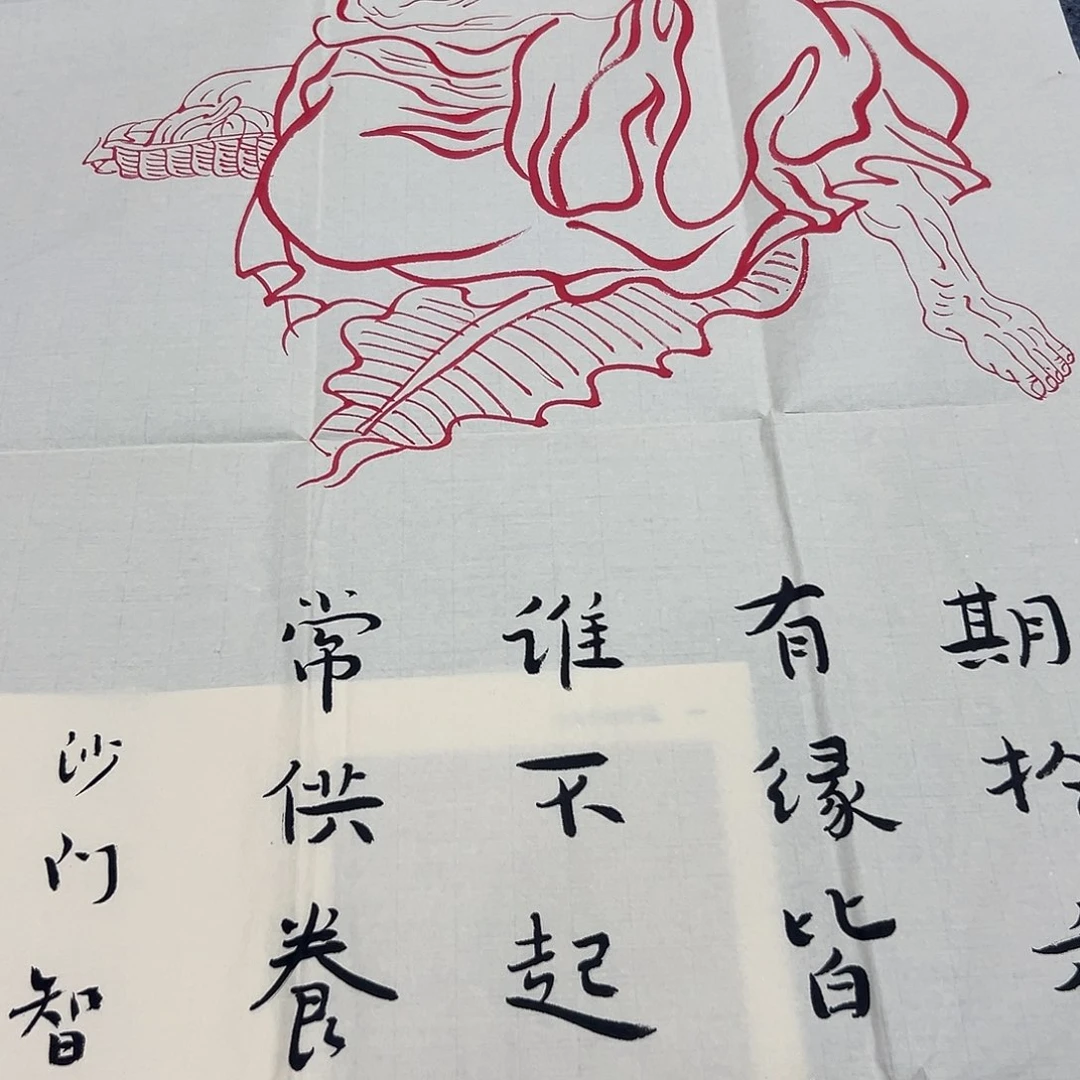 期
有缘皆
谁不起
常供养
沙门智